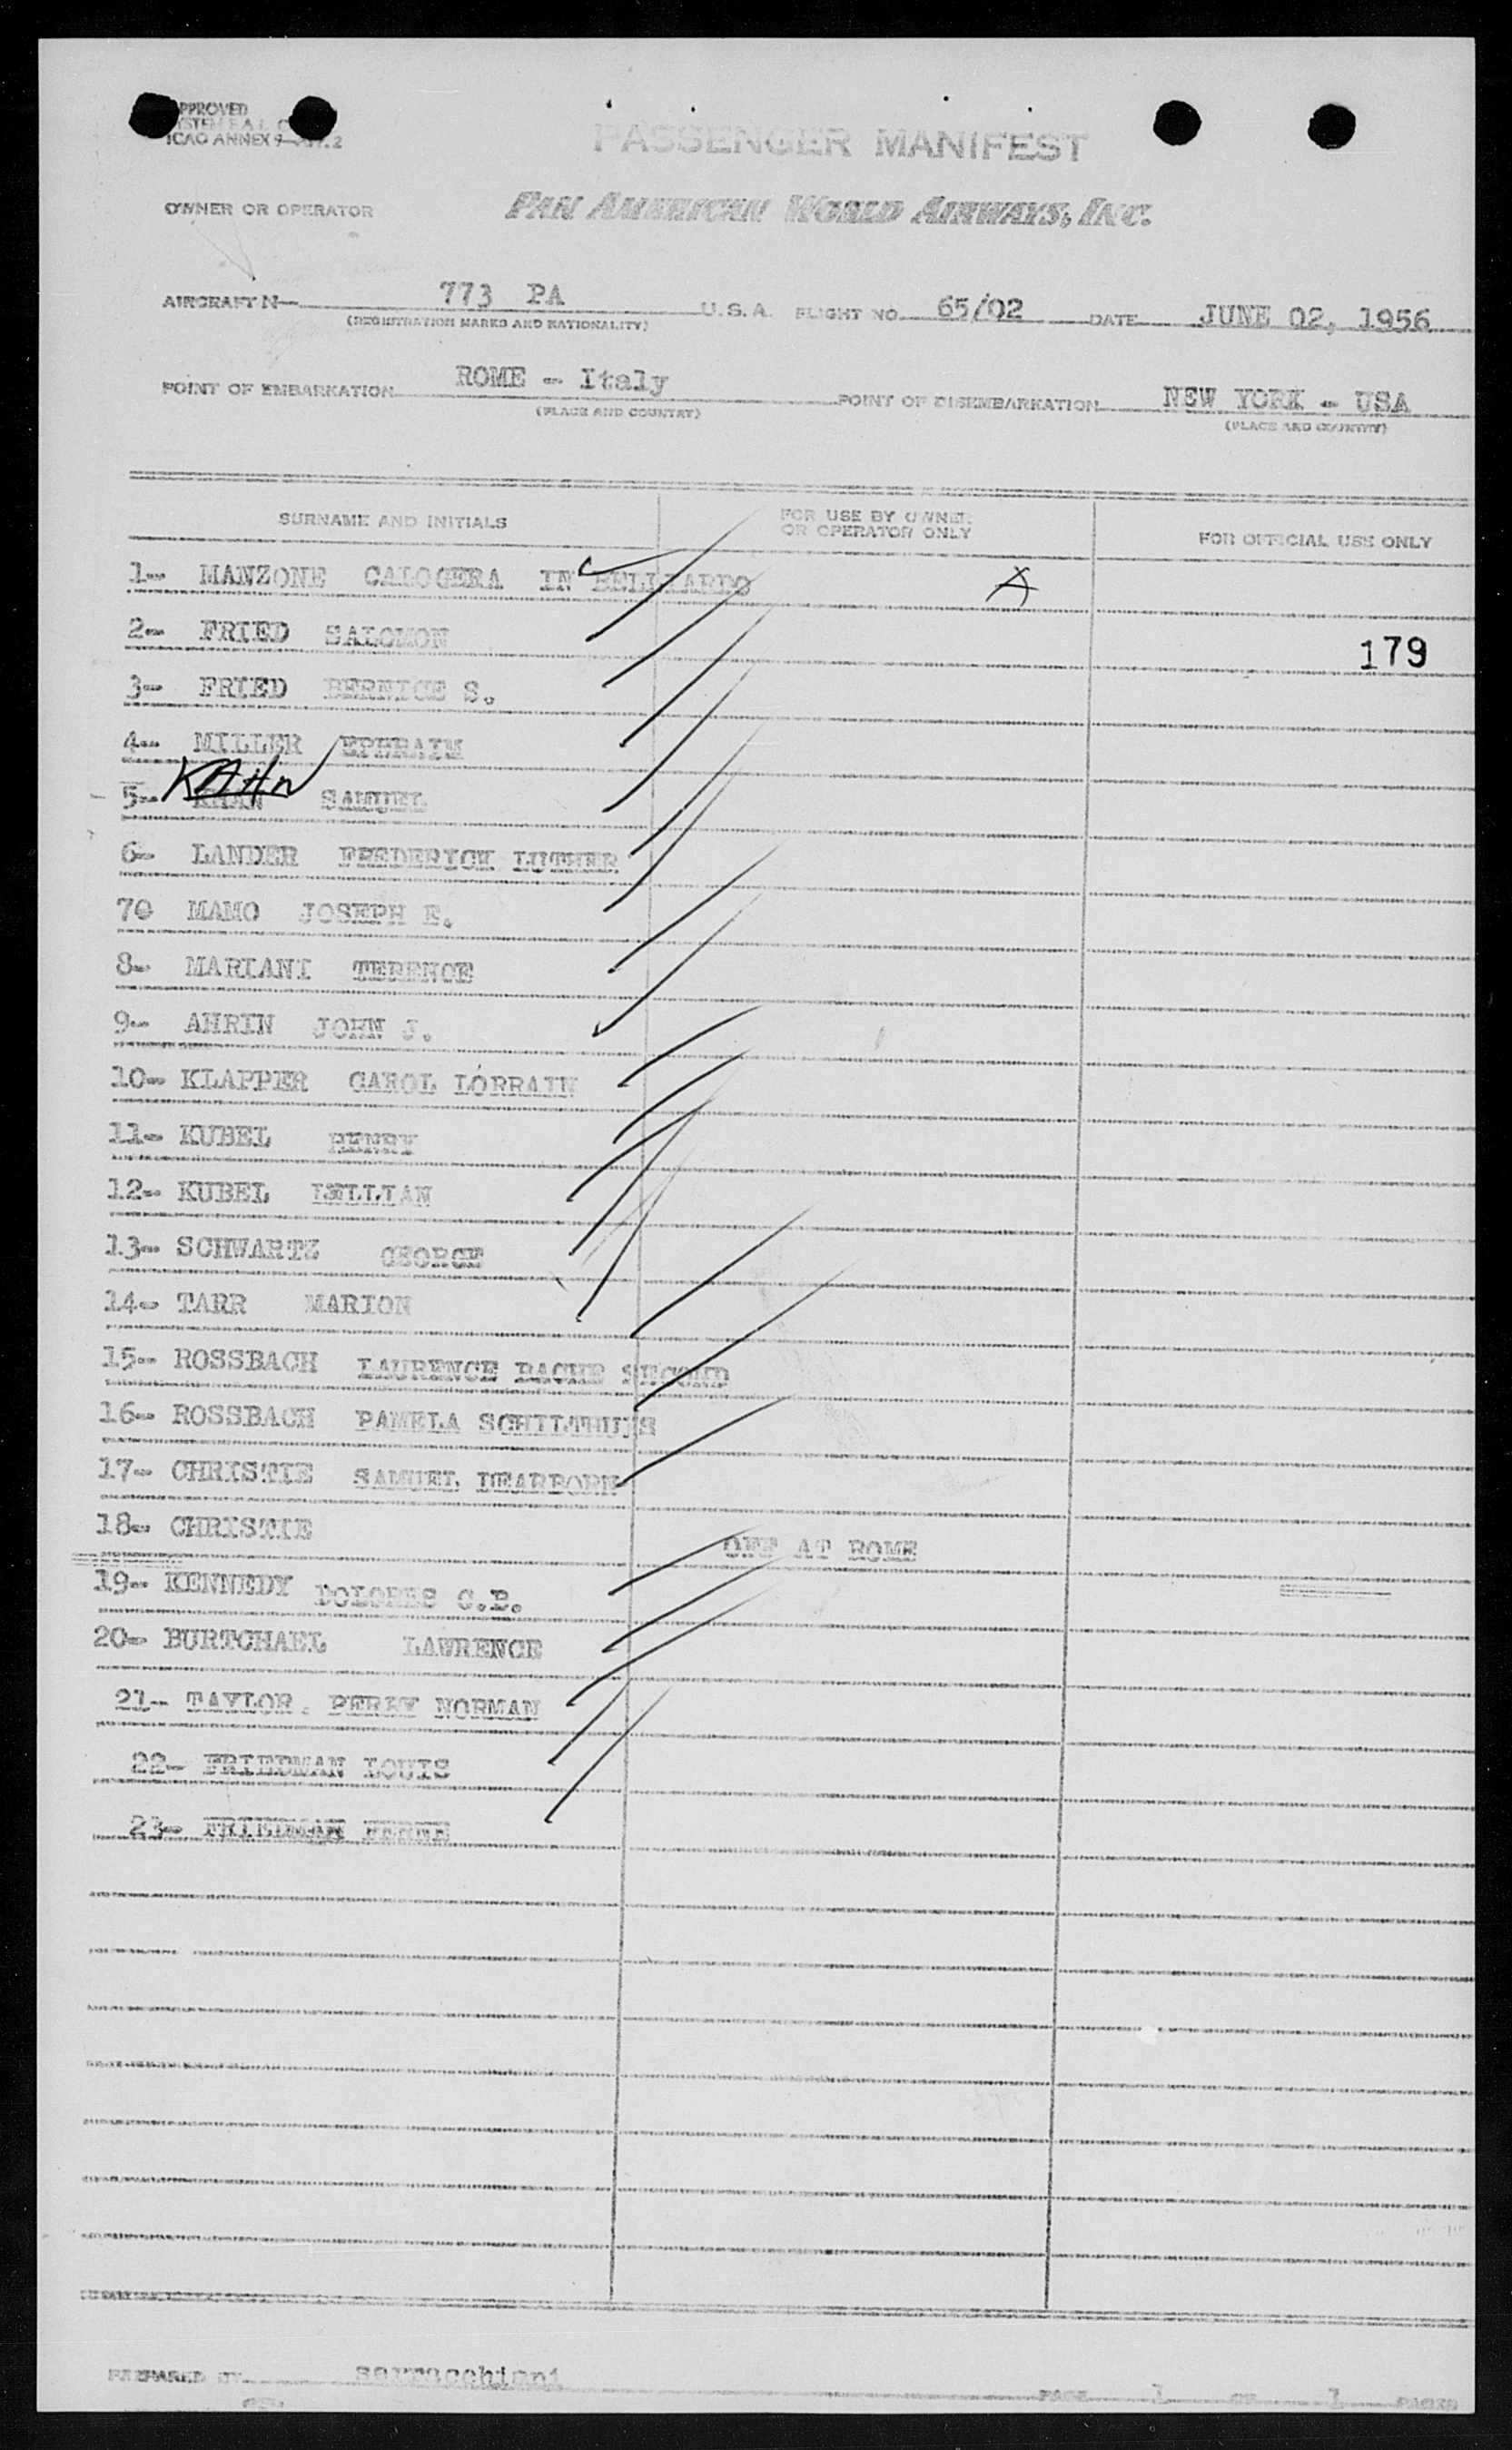 APPROVED
ICAO ANNEX 9
PASSENGER MANIFEST
OWNER OR OPERATOR PAN AMERICAN WORLD AIRWAYS, INC.
AIRCRAFT N- 773 PA U.S.A. FLIGHT NO. 65/02 DATE JUNE 02, 1956
(REGISTRATION MARKS AND NATIONALITY)
POINT OF EMBARKATION ROME - Italy POINT OF DISEMBARKATION NEW YORK - USA
(PLACE AND COUNTRY) (PLACE AND COUNTRY)
SURNAME AND INITIALS FOR USE BY OWNER OR OPERATOR ONLY FOR OFFICIAL USE ONLY
1- MANZONE CALOGERA IN BELLIARDO A
2- FRIED SALOMON 179
3- FRIED BERNICE S.
4- MILLER EPHRAIM
KAHN
5- KHAN SAMUEL
6- LANDER FREDERICK LUTHER
70 MAMO JOSEPH E.
8- MARIANI TERENCE
9- AHRIN JOHN J.
10- KLAPPER CAROL LORRAIN
11- KUBEL HENRY
12- KUBEL LILLIAN
13- SCHWARTZ GEORGE
14- TARR MARION
15- ROSSBACH LAURENCE BACHE SECOND
16- ROSSBACH PAMELA SCHILTHUIS
17- CHRISTIE SAMUEL DEARBORN
18- CHRISTIE OFF AT ROME
19- KENNEDY DOLORES C.B.
20- BURTCHAEL LAWRENCE
21- TAYLOR. PERRY NORMAN
22- FRIEDMAN LOUIS
23- FRIEDMAN
PREPARED BY sarracchiani PAGE 1 OF 1 PAGES